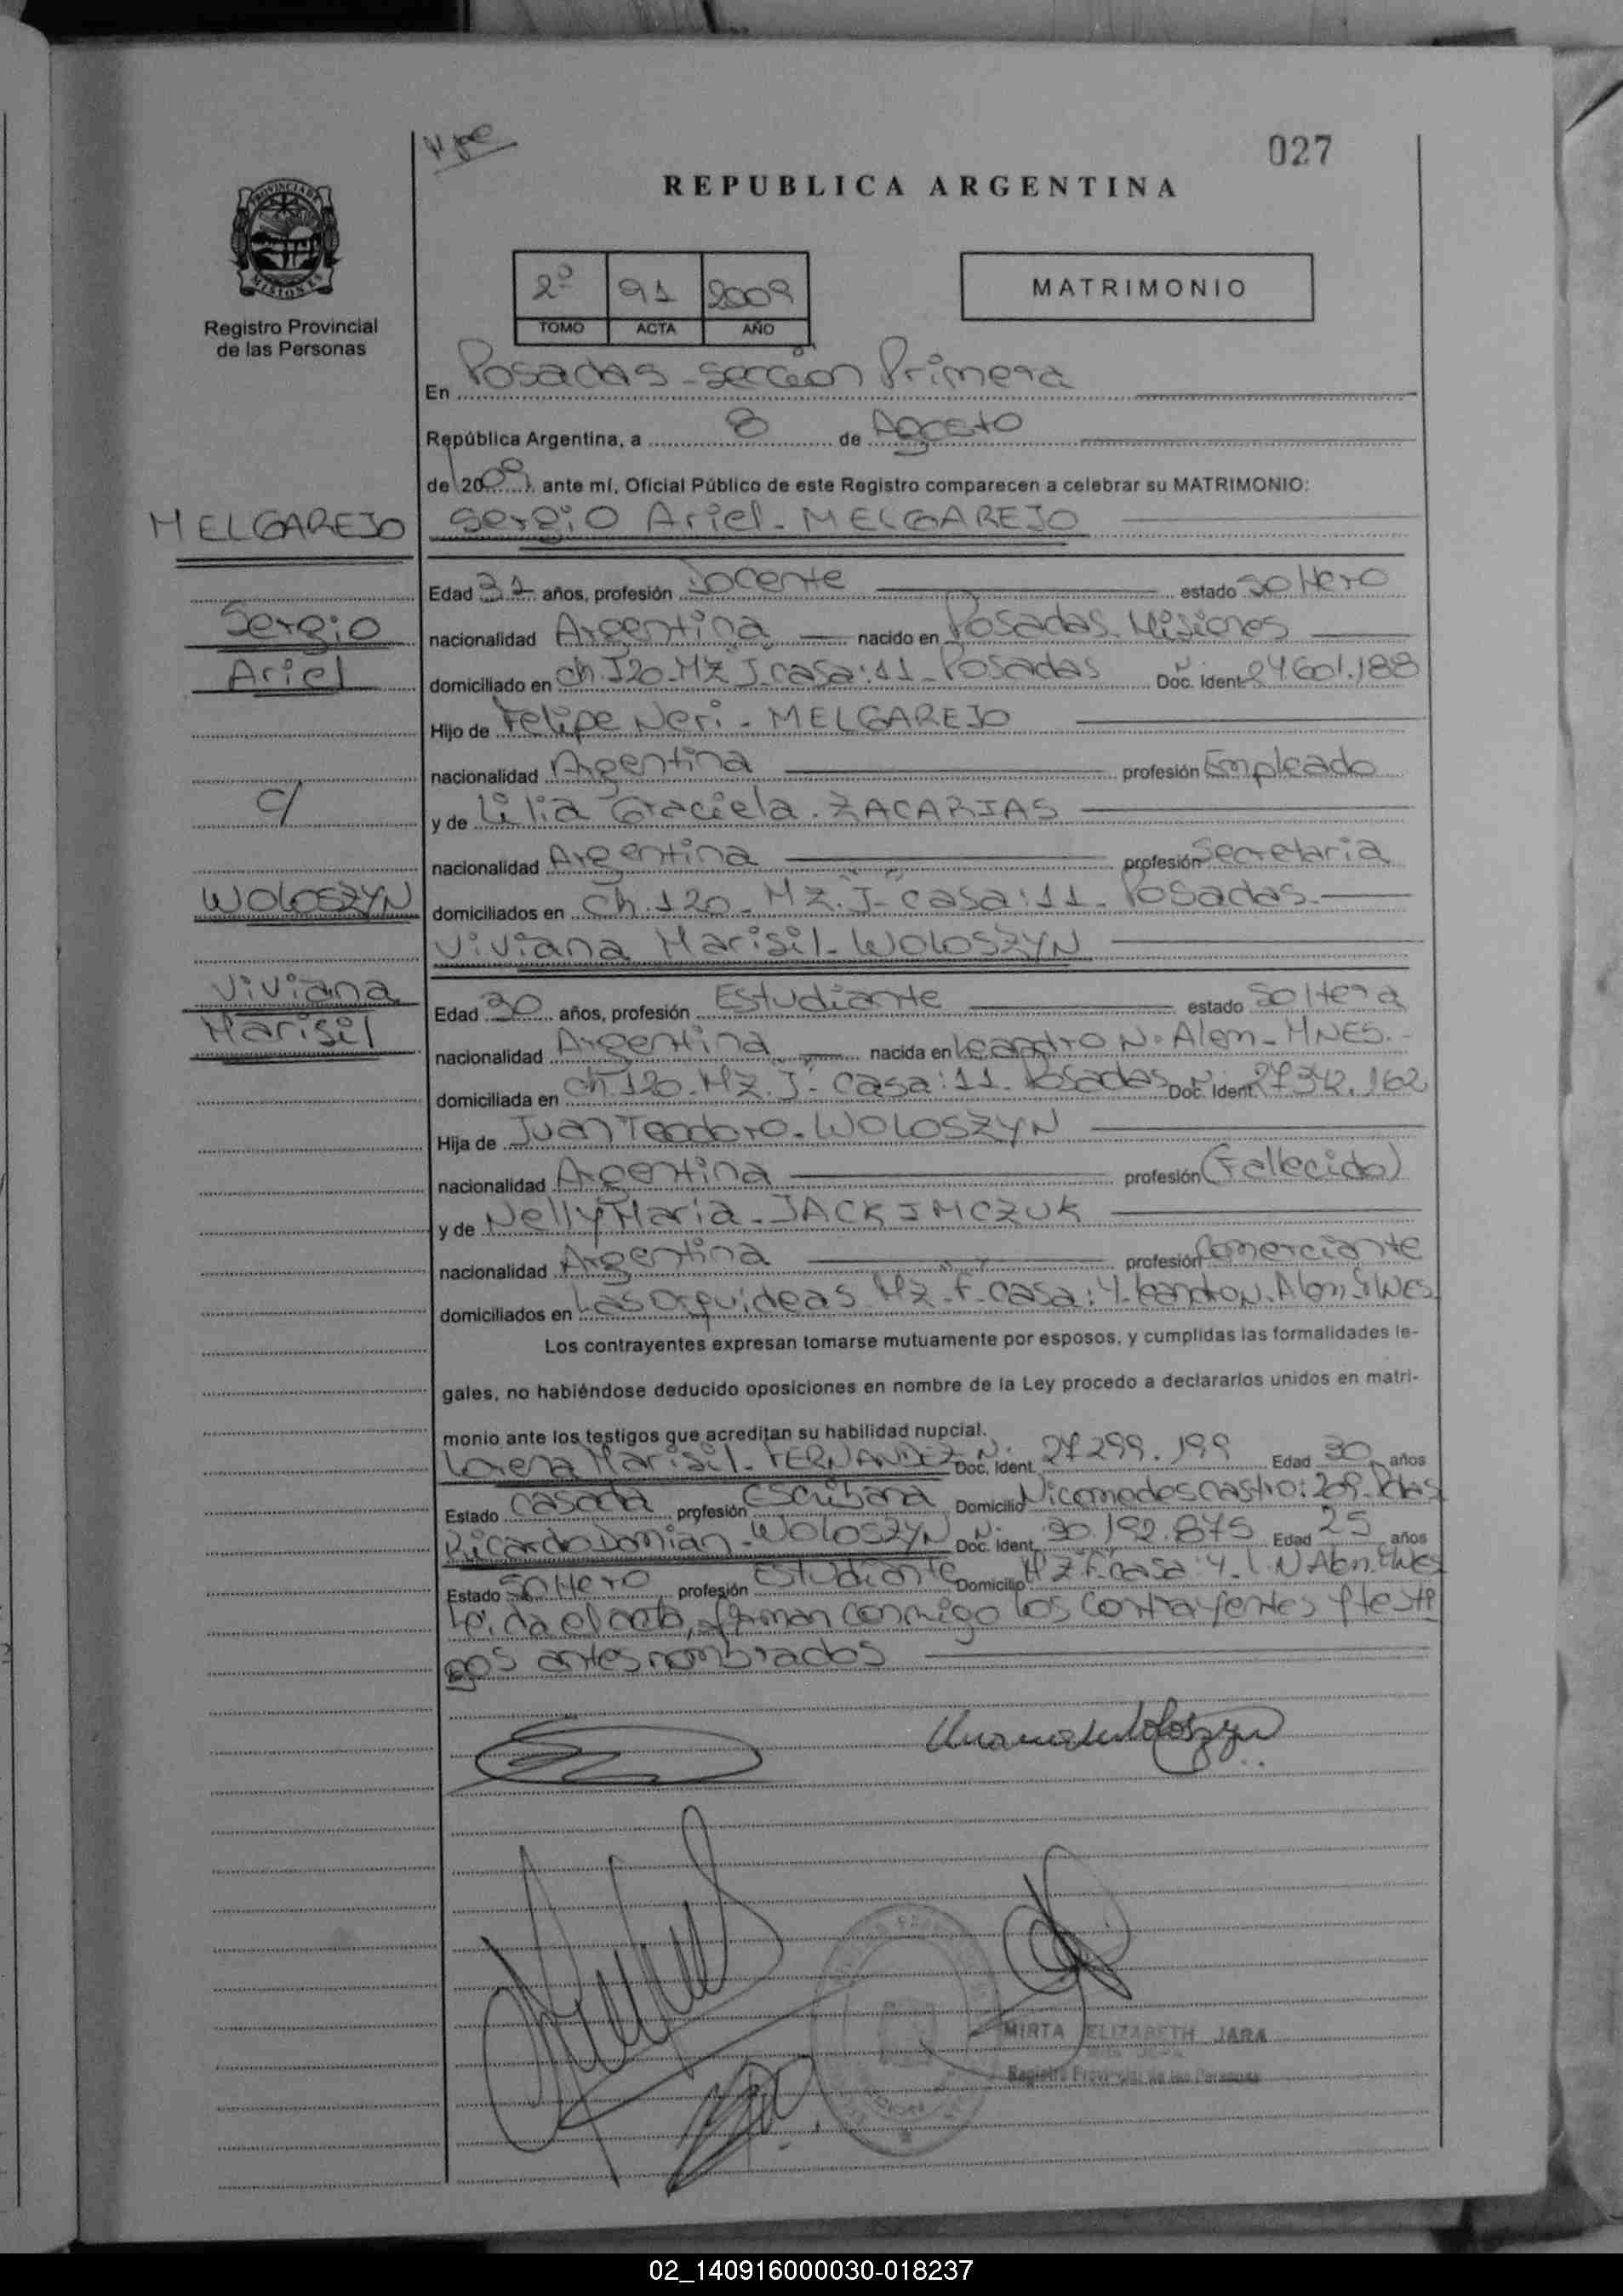 027
REPUBLICA ARGENTINA
PROVINCIA DE
MISIONES
Registro Provincial
de las Personas
2º 91 2009
TOMO ACTA AÑO
MATRIMONIO
En Posadas - sección Primera
República Argentina, a 8 de Agosto
de 2009, ante mí, Oficial Público de este Registro comparecen a celebrar su MATRIMONIO:
MELGAREJO Sergio Ariel - MELGAREJO
Edad 31 años, profesión Docente estado Soltero
Sergio nacionalidad Argentina nacido en Posadas Misiones
Ariel domiciliado en ch. 120 - MZ J - casa: 11 - Posadas Doc. Ident. 24.601.188
Hijo de Felipe Neri - MELGAREJO
nacionalidad Argentina profesión Empleado
c/ y de Lilia Graciela - ZACARIAS
nacionalidad Argentina profesión Secretaria
WOLOSZYN domiciliados en Ch. 120 - MZ. J - casa: 11 - Posadas -
Viviana Marisil - WOLOSZYN
Viviana Edad 30 años, profesión Estudiante estado Soltera
Marisil nacionalidad Argentina nacida en Leandro N. Alem - MNES. -
domiciliada en ch. 120 - MZ. J - Casa: 11 - Posadas Doc. Ident. 27.342.162
Hija de Juan Teodoro - WOLOSZYN
nacionalidad Argentina profesión (Fallecido)
y de Nelly Maria - JACKIMCZUK
nacionalidad Argentina profesión Comerciante
domiciliados en Las Orquideas Mz - F - casa: 4 - Leandro N. Alem MNES.
Los contrayentes expresan tomarse mutuamente por esposos, y cumplidas las formalidades le-
gales, no habiéndose deducido oposiciones en nombre de la Ley procedo a declararlos unidos en matri-
monio ante los testigos que acreditan su habilidad nupcial.
Lorena Marisil - FERNANDEZ Doc. Ident. 27.299.199 Edad 30 años
Estado Casada profesión Escribana Domicilio Nicomedes Castro: 209 - Pdas
Ricardo Damian - WOLOSZYN Doc. Ident. 30.192.875 Edad 25 años
Estado Soltero profesión Estudiante Domicilio MZ F casa: 4 - L. N Alem. MNES
Leida el acta, firman conmigo los contrayentes y testi
gos antes nombrados
MIRTA ELIZABETH JARA
Registro Provincial de las Personas
02_140916000030-018237